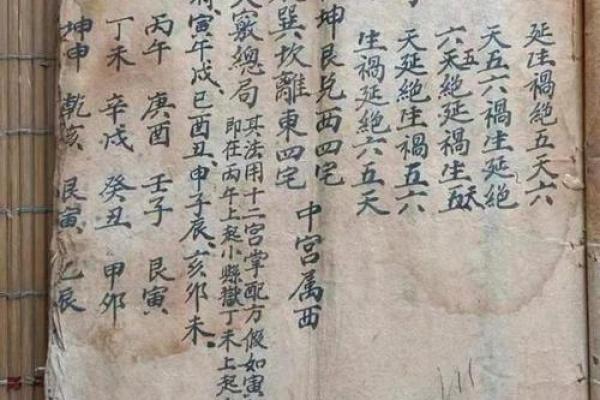 延生禍絶五天六
天五六禍生延絶
六五天絶延禍生五天
天延絶生禍五六
生禍延絶六五天
坤艮兌西四宅 中宮属西
巽坎離東四宅
天竅總局 其法用十二宮掌配方假如寅
即在丙午上起小縣獄丁未上起
寅午戌、巳酉丑、申子辰、亥卯未、
丙午 庚酉 壬子 艮寅
丁未 辛戌 癸丑 甲卯
坤申 乾亥 艮寅、乙辰